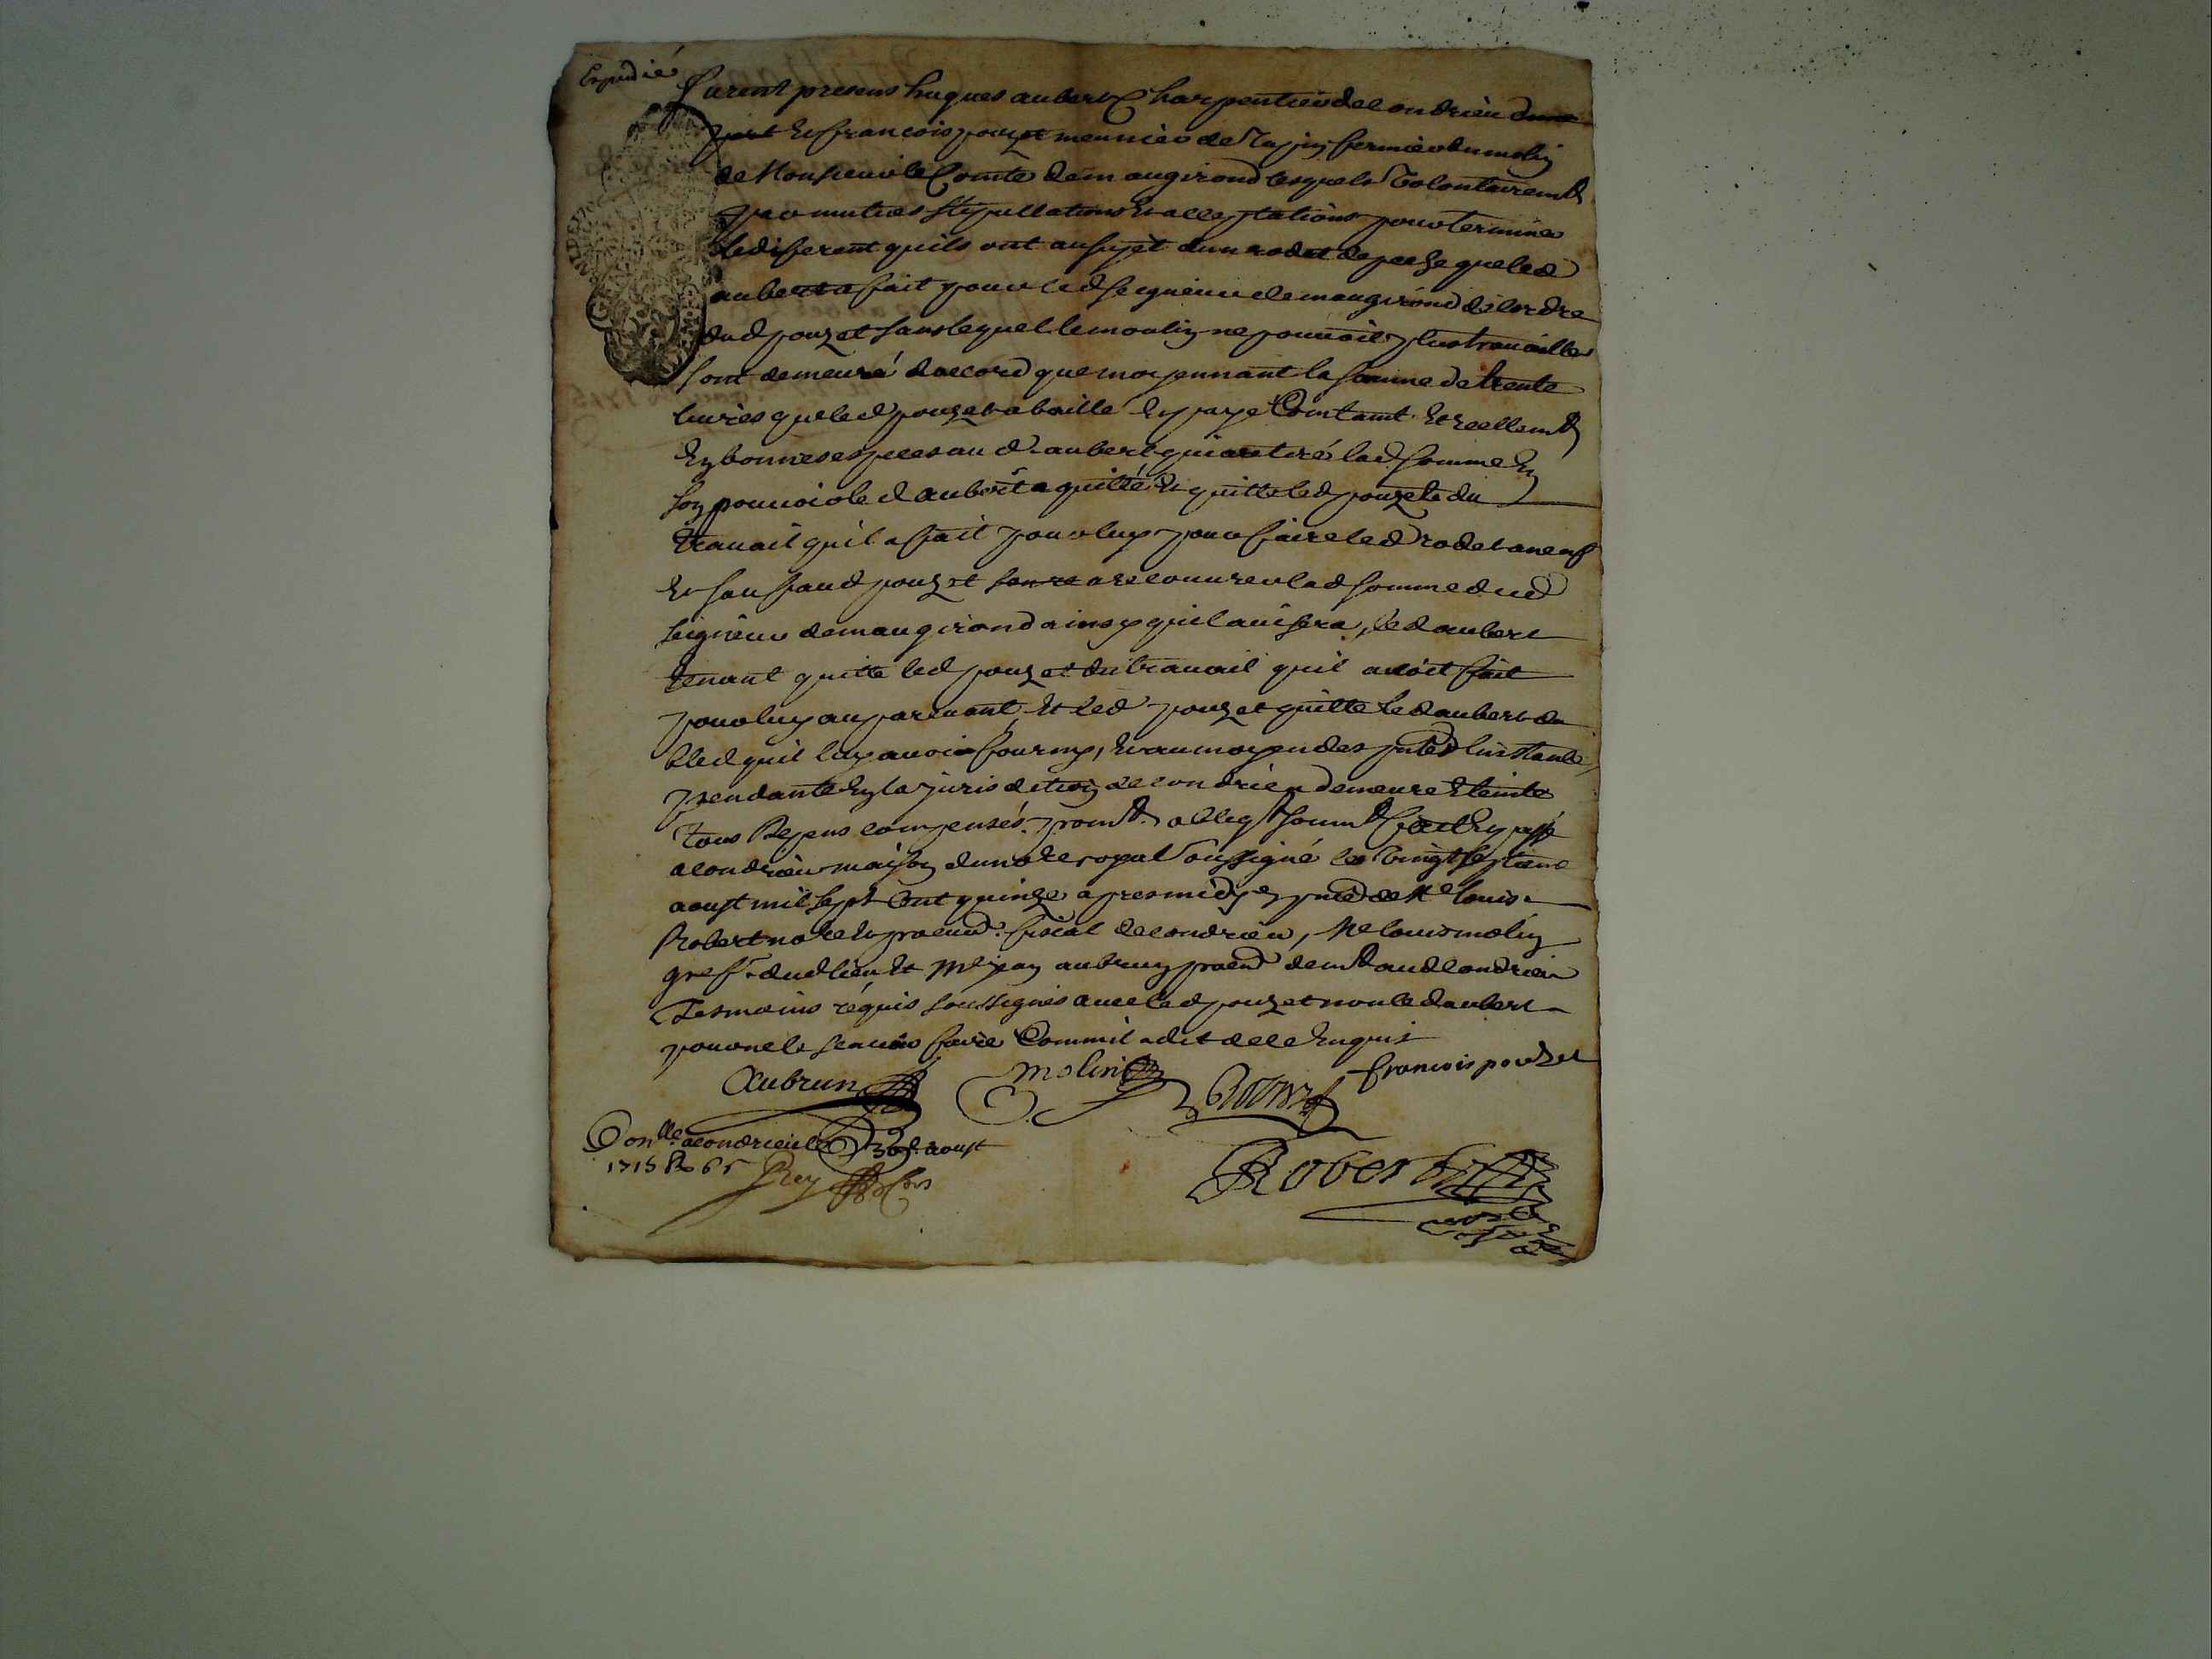 Expedié
Furent presens hugues aubert Charpentier de Condrieu dune
part Et francois pouzet meunier de Tupin fermier du molin
de Monsieur le Comte de maugirond lesquels Volontairemt
par mutues Stipullations Et acceptations pour terminer
le diferent quils ont au sujet dun rodet de que led
aubert a fait pour led seigneur de maugirond de lordre
dud pouzet sans lequel le moulin ne pouuoit plus trauailler
sont demeuré daccord que moyennant la somme de trente
liures que led pouzet a baillé Et payé Comtant Et reellemt
En bonnes especes aud aubert qui a retiré lad somme En
son pouuoir led aubert a quitté Et quitte led pouzet du
trauail quil a fait pour luy pour faire led rodet a neuf
Et sauf aud pouzet a recouurer lad somme dud
seigneur de maugirond ainsy quil auisera, led aubert
tenant quitte led pouzet du trauail quil auoit fait
pour luy auparauant, Et led pouzet quitte led aubert du
bled quil luy auoit fourny, Et au moyen des pntes linstance
pendante En la jurisdiction de Condrieu demeure Eteinte
tous depens compensés. promt. obligt soumt fait Et passé
a Condrieu maison du nore royal soussigné le vingt septieme
aoust mil sept Cent quinze apres midy En pnce de Me louis
Robert nore Et procur. fiscal de Condrieu, Me louis molin
greff. dud lieu, Et Me jean aubrun procr demt aud Condrieu
tesmoins requis soussignés auec led pouzet non led aubert
pour ne le scauoir faire Comme il a dit de ce Enquis
Aubrun molin francois pouzet
Robert
Conlle a condrieu le 30e aoust
1715 Ro 65
Rey